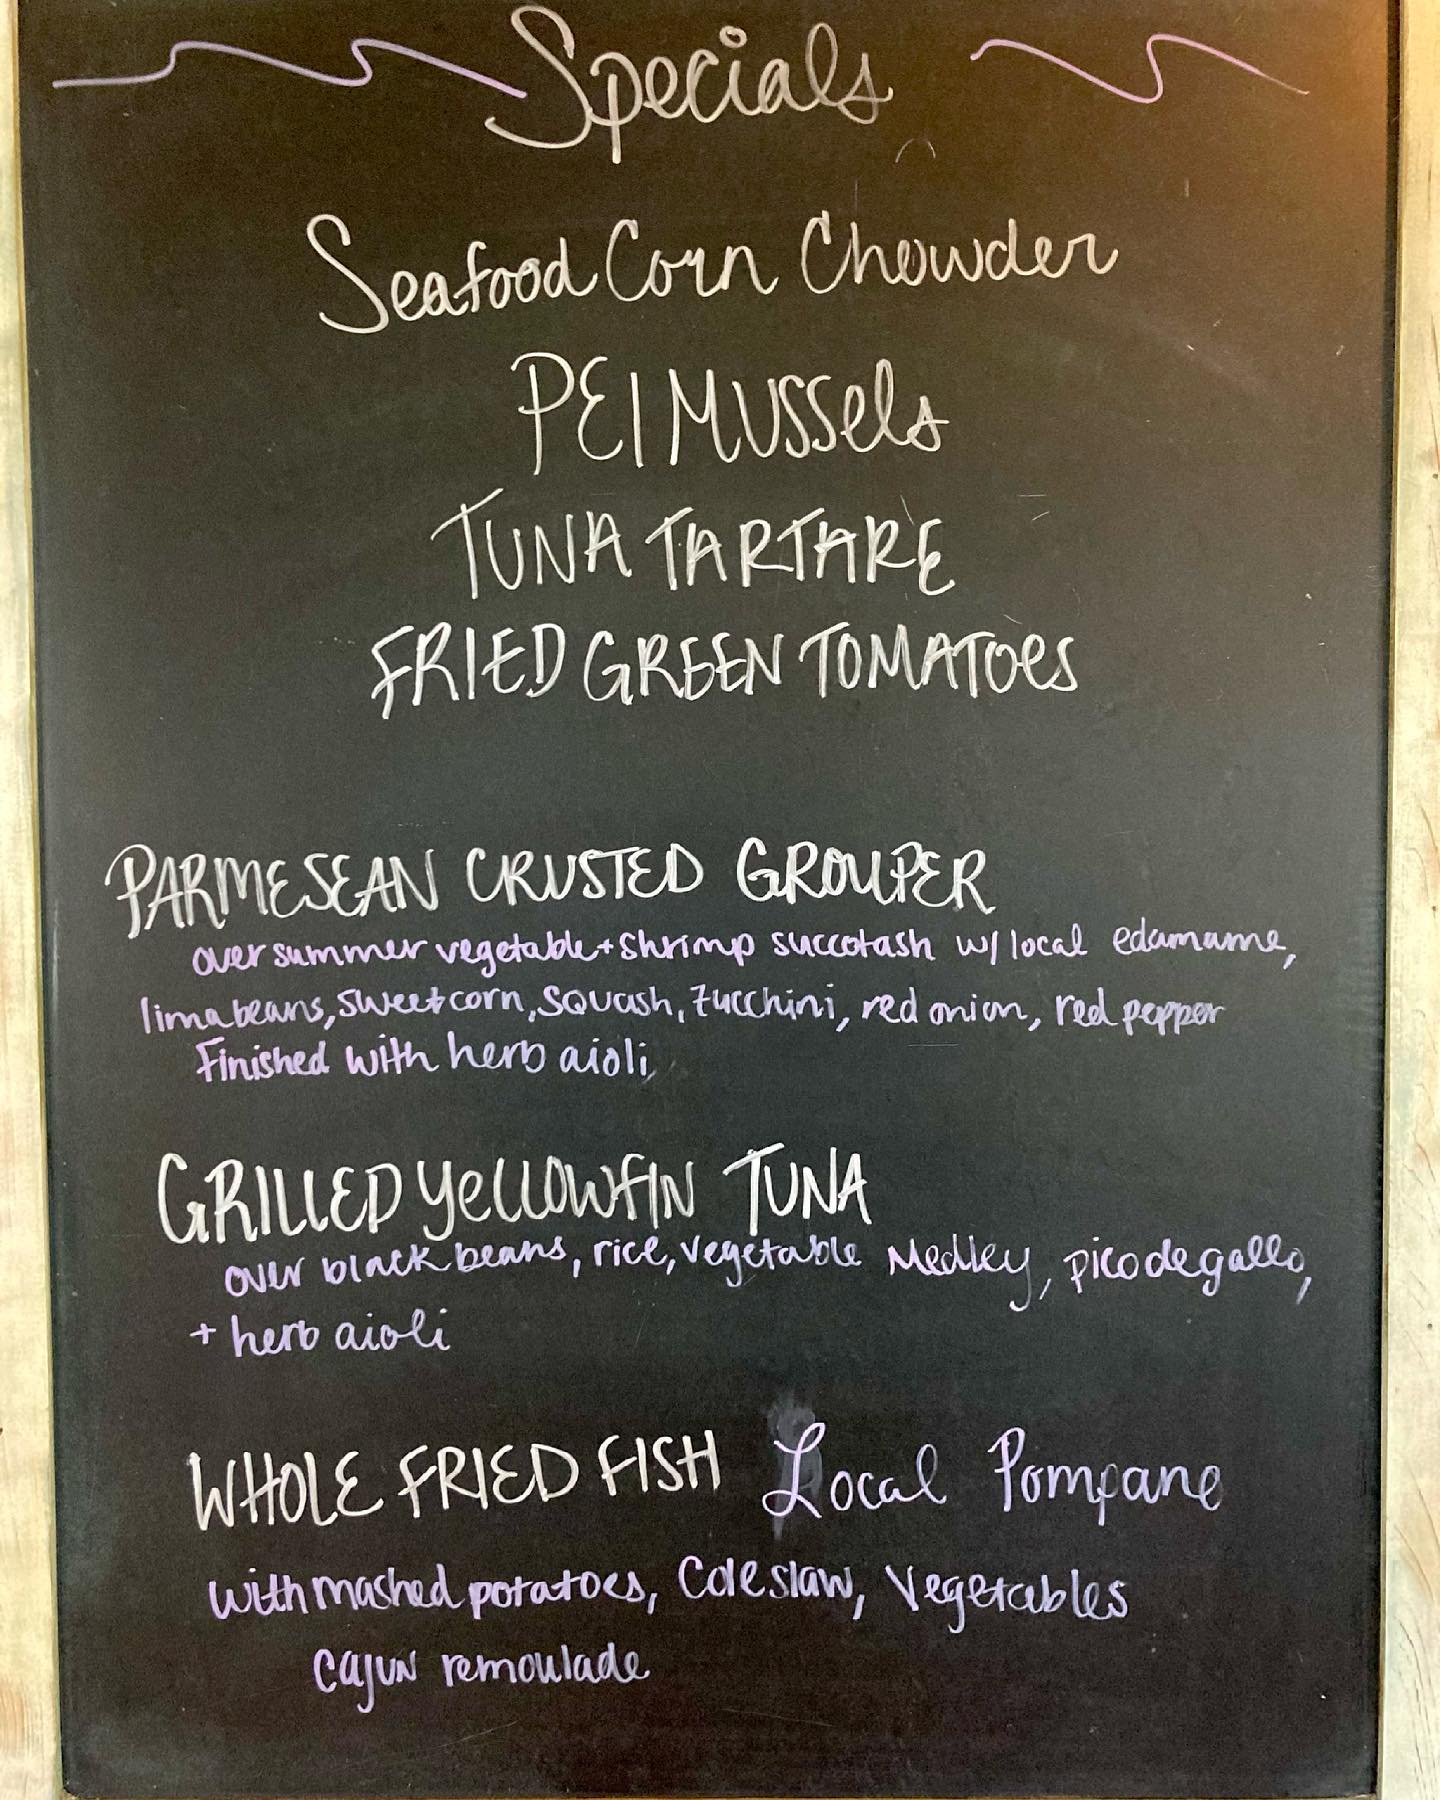 Specials
Seafood Corn Chowder
PEI MUSSels
TUNA TARTARE
FRIED GREEN TOMATOes
PARMESEAN CRUSTED GROUPER
over summer vegetable + shrimp succotash w/ local edamame,
lima beans, sweet corn, squash, zucchini, red onion, red pepper
Finished with herb aioli
GRILLED YeLLOWFIN TUNA
over black beans, rice, vegetable Medley, pico de gallo,
+ herb aioli
WHOLE FRIED FISH Local Pompano
with mashed potatoes, Coleslaw, Vegetables
cajun remoulade